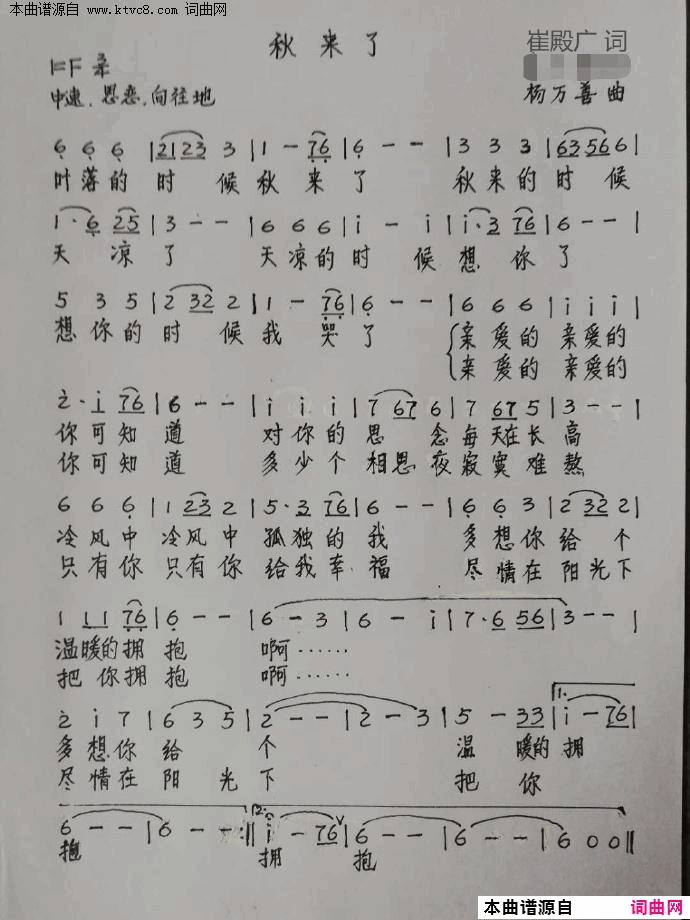 本曲谱源自
www.ktvc8.com 词曲网
秋来了
崔殿广 词
1=F 3/4
中速、思恋、向往地
杨万善 曲
6 6 6 | 2123 3 | 1 - 76 | 6 - - | 3 3 3 | 63566 |
叶落的时候秋来了 秋来的时候
1·6 25 | 3 - - | 6 6 6 | i - i | i·3 76 | 6 - - |
天凉了 天凉的时候想你了
5 3 5 | 2 32 2 | 1 - 76 | 6 - - | 6 6 6 | i i i |
想你的时候我哭了 亲爱的 亲爱的
亲爱的 亲爱的
2·i 76 | 6 - - | i i i | 7 67 6 | 7 67 5 | 3 - - |
你可知道 对你的思念每天在长高
你可知道 多少个相思夜寂寞难熬
6 6 6 | 1 23 2 | 5·3 76 | 6 - - | 6 6 3 | 2 32 2 |
冷风中 冷风中 孤独的我 多想你给个
只有你 只有你 给我幸福 尽情在阳光下
1 11 76 | 6 - - | 6 - 3 | 6 - i | 7·6 56 | 3 - - |
温暖的拥抱 啊……
把你拥抱 啊……
2 i 7 | 6 3 5 | 2 - - | 2 - 3 | 5 - 33 | 1. i - 76 |
多想你给个 温暖的拥
尽情在阳光下 把你
6 - - | 6 - - :‖ 2. i - 76 V | 6 - - | 6 - - | 6 0 0 ‖
抱 拥 抱
本曲谱源自 词曲网